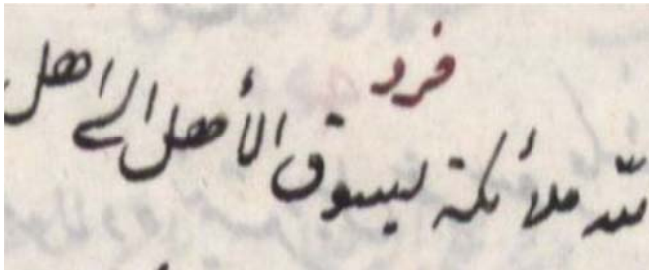 فرد
لله ملائكة ليسوق الأهل الى اهل